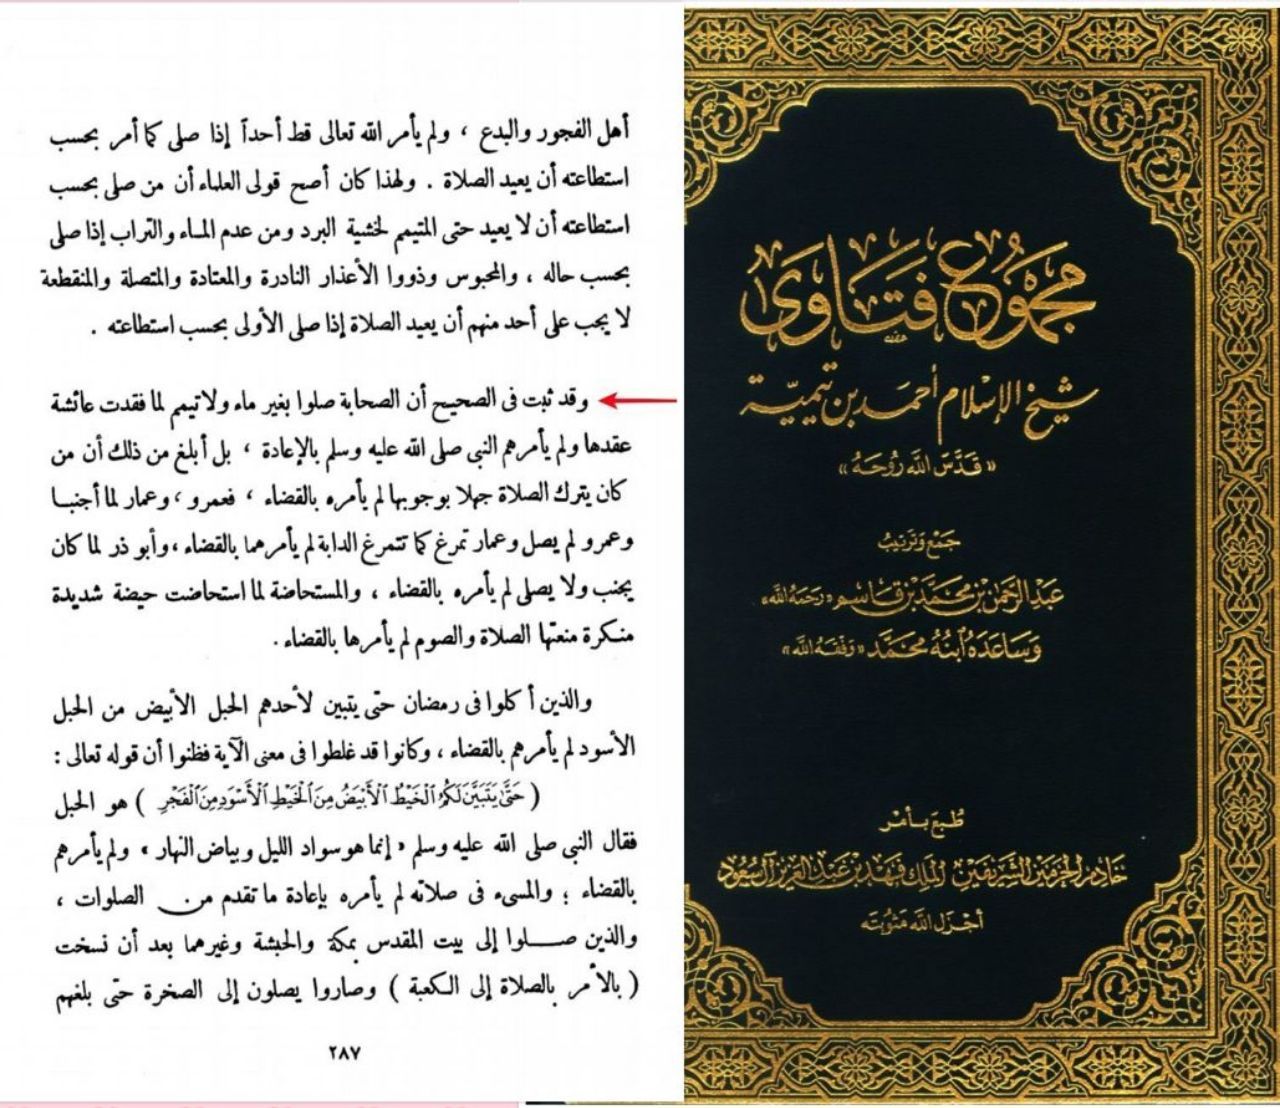 أهل الفجور والبدع ، ولم يأمر الله تعالى قط أحداً إذا صلى كما أمر بحسب
استطاعته أن يعيد الصلاة . ولهذا كان أصح قولى العلماء أن من صلى بحسب
استطاعته أن لا يعيد حتى المتيمم لخشية البرد ومن عدم المـاء والتراب إذا صلى
بحسب حاله ، والمحبوس وذووا الأعذار النادرة والمعتادة والمتصلة والمنقطعة
لا يجب على أحد منهم أن يعيد الصلاة إذا صلى الأولى بحسب استطاعته .
وقد ثبت فى الصحيح أن الصحابة صلوا بغير ماء ولا تيمم لما فقدت عائشة
عقدها ولم يأمرهم النبى صلى الله عليه وسلم بالإعادة ، بل أبلغ من ذلك أن من
كان يترك الصلاة جهلا بوجوبها لم يأمره بالقضاء ، فعمرو ، وعمار لما أجنبـا
وعمرو لم يصل وعمار تمرغ كما تتمرغ الدابة لم يأمرهما بالقضاء ، وأبو ذر لما كان
يجنب ولا يصلى لم يأمره بالقضاء ، والمستحاضة لما استحاضت حيضة شديدة
منكرة منعتها الصلاة والصوم لم يأمرها بالقضاء .
والذين أكلوا فى رمضان حتى يتبين لأحدهم الحبل الأبيض من الحبل
الأسود لم يأمرهم بالقضاء ، وكانوا قد غلطوا فى معنى الآية فظنوا أن قوله تعالى :
( حَتَّىٰ يَتَبَيَّنَ لَكُمُ الْخَيْطُ الْأَبْيَضُ مِنَ الْخَيْطِ الْأَسْوَدِ مِنَ الْفَجْرِ ) هو الحبل
فقال النبى صلى الله عليه وسلم « إنما هو سواد الليل وبياض النهار » ولم يأمرهم
بالقضاء ؛ والمسىء فى صلاته لم يأمره بإعادة ما تقدم من الصلوات ،
والذين صـــلوا إلى بيت المقدس بمكة والحبشة وغيرهما بعد أن نسخت
( بالأمر بالصلاة إلى الكعبة ) وصاروا يصلون إلى الصخرة حتى بلغهم
٢٨٧
مجموع فتاوى
شيخ الإسلام أحمد بن تيمية
« قدس الله روحه »
جمع وترتيب
عبد الرحمن بن محمد بن قاسم « رحمه الله »
وساعده ابنه محمد « وفقه الله »
طبع بأمر
خادم الحرمين الشريفين الملك فهد بن عبد العزيز آل سعود
أجزل الله مثوبته